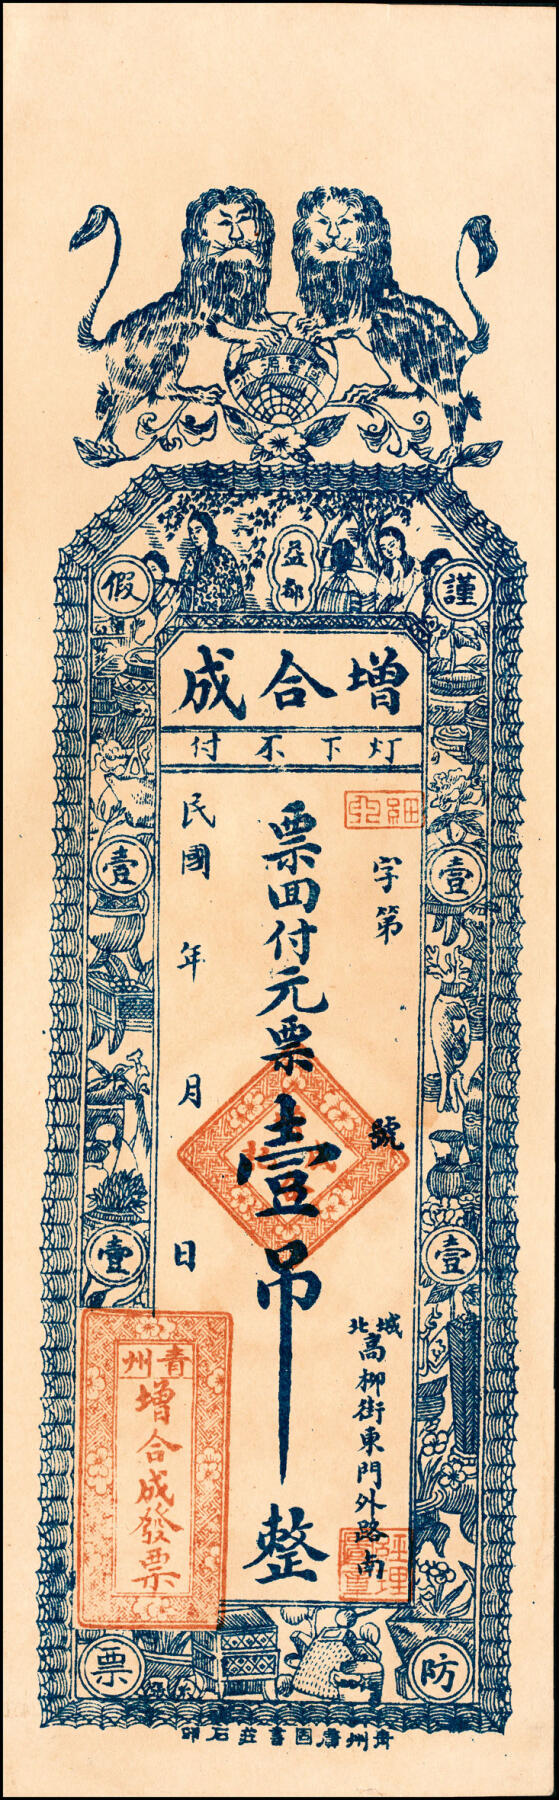 益都
謹
防
假
票
壹
壹
壹
壹
增合成
灯下不付
字第
號
票回付元票壹吊整
民國
年
月
日
城北
高柳街東門外路南
青州
增合成發票
經理
青州
書莊石印